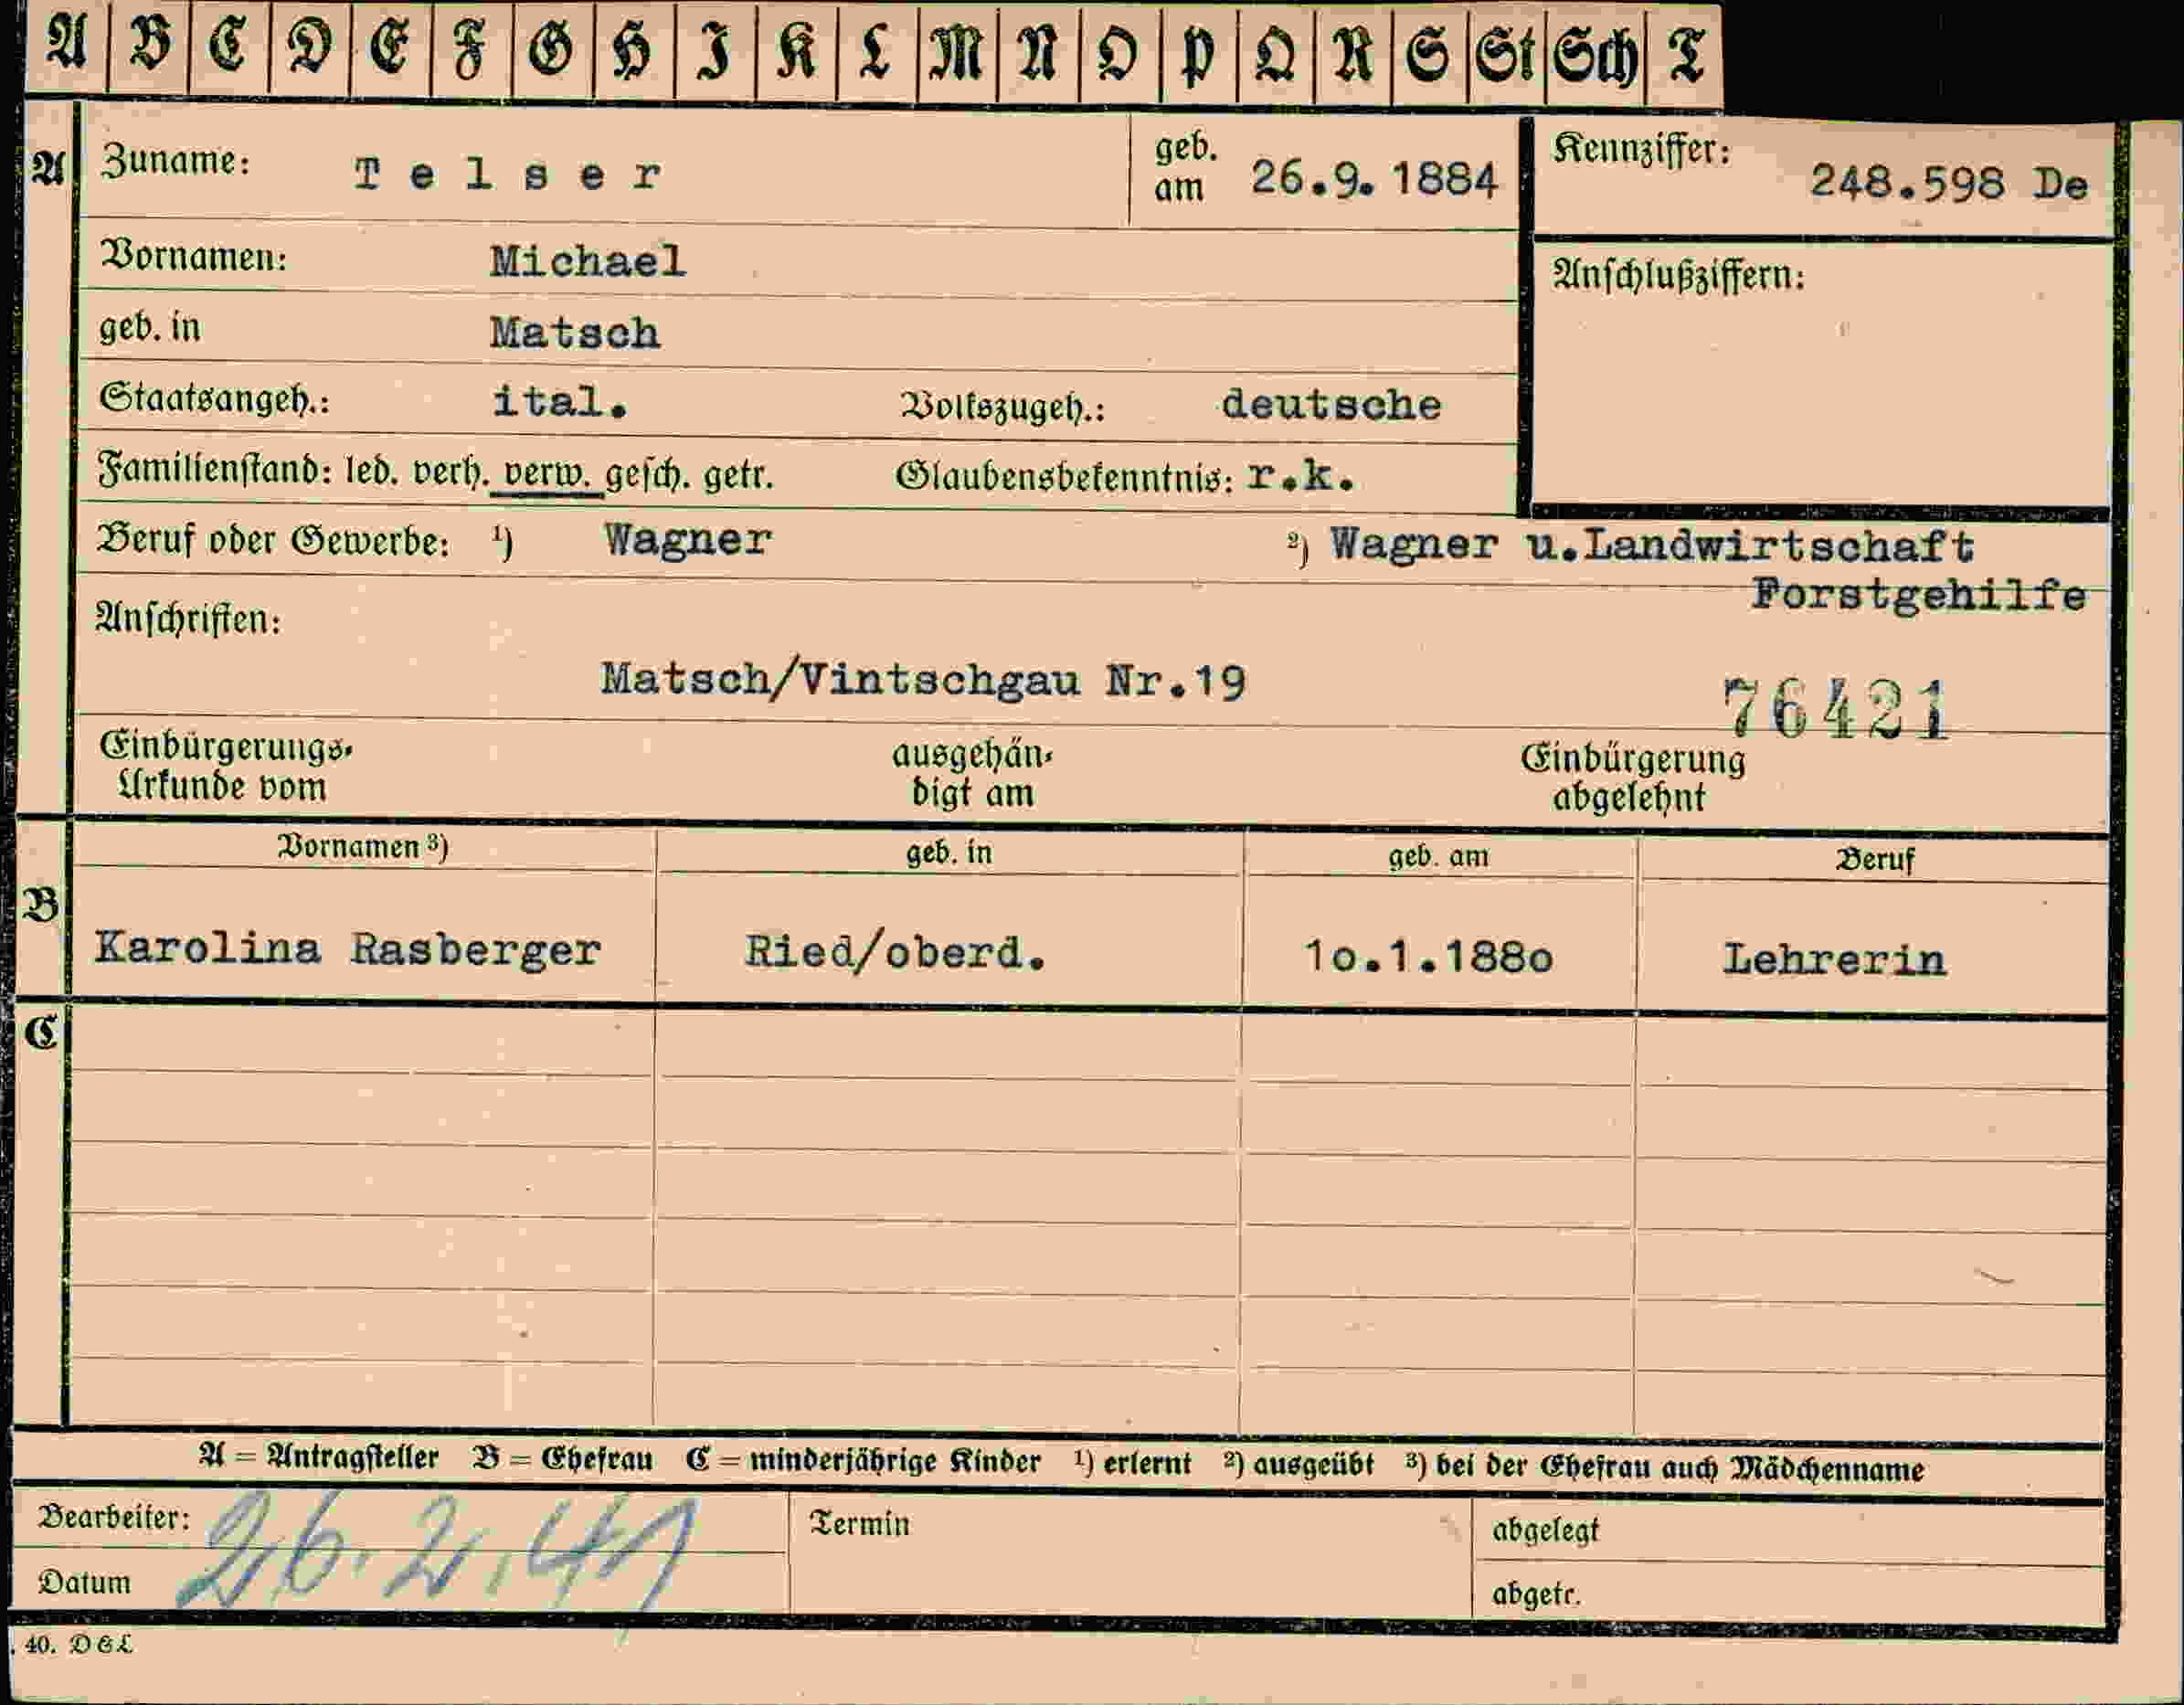 A B C D E F G H I K L M N O P Q R S St Sch T
A Zuname: Telser geb. am 26.9.1884 Kennziffer: 248.598 De
Vornamen: Michael Anschlußziffern:
geb. in Matsch
Staatsangeh.: ital. Volkszugeh.: deutsche
Familienstand: led. verh. verw. gesch. getr. Glaubensbekenntnis: r.k.
Beruf oder Gewerbe: ¹) Wagner ²) Wagner u.Landwirtschaft
Forstgehilfe
Anschriften:
Matsch/Vintschgau Nr.19
76421
Einbürgerungs- ausgehän- Einbürgerung
Urkunde vom digt am abgelehnt
Vornamen ³) geb. in geb. am Beruf
B
Karolina Rasberger Ried/oberd. 1o.1.188o Lehrerin
C
A = Antragsteller B = Ehefrau C = minderjährige Kinder ¹) erlernt ²) ausgeübt ³) bei der Ehefrau auch Mädchenname
Bearbeiter: Termin abgelegt
26.2.41
Datum abgetr.
. 40. DGL